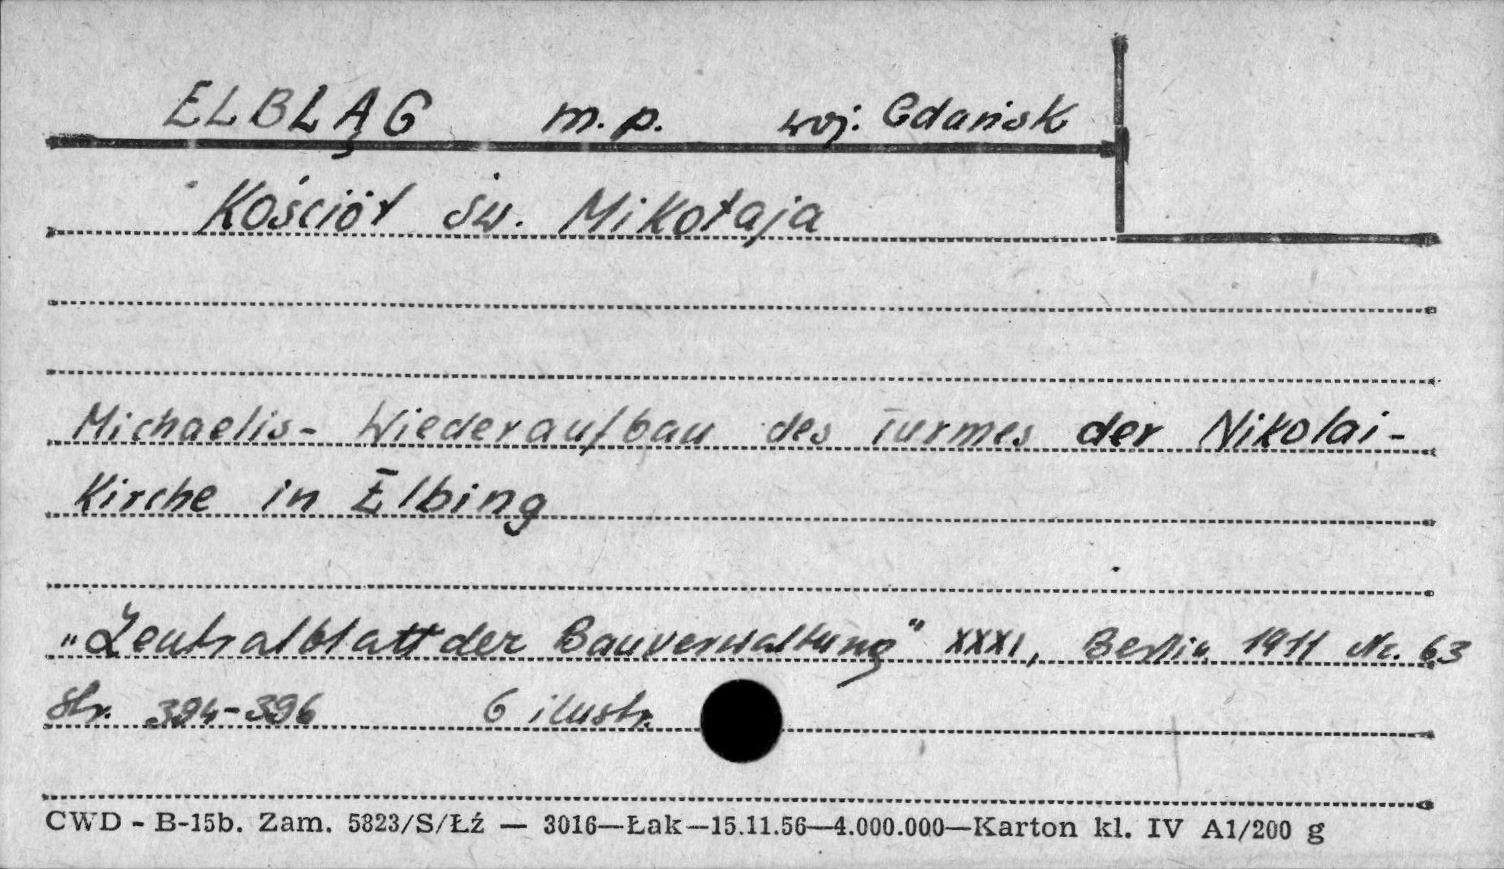 ELBLĄG m. p. woj. Gdańsk
Kościół św. Mikołaja
Michaelis- Wiederaufbau des Turmes der Nikolai-
Kirche in Elbing
„Zentralblatt der Bauverwaltung" XXXI, Berlin 1911 Nr. 63
str. 394-396 6 ilustr.
CWD - B-15b. Zam. 5823/S/Łź — 3016—Łak—15.11.56—4.000.000—Karton kl. IV A1/200 g